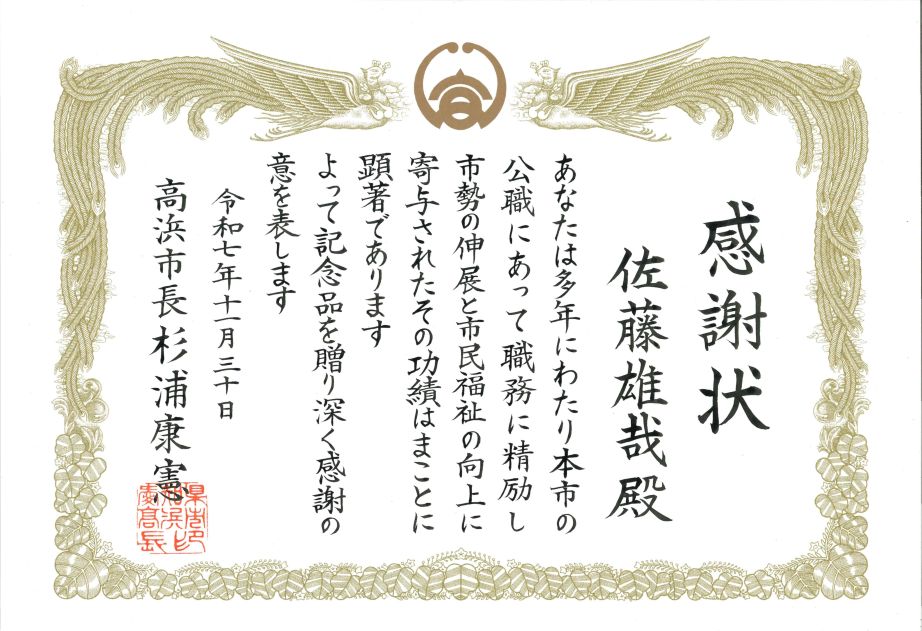 感謝状
佐藤雄哉殿
あなたは多年にわたり本市の
公職にあって職務に精励し
市勢の伸展と市民福祉の向上に
寄与されたその功績はまことに
顕著であります
よって記念品を贈り深く感謝の
意を表します
令和七年十一月三十日
高浜市長杉浦康憲